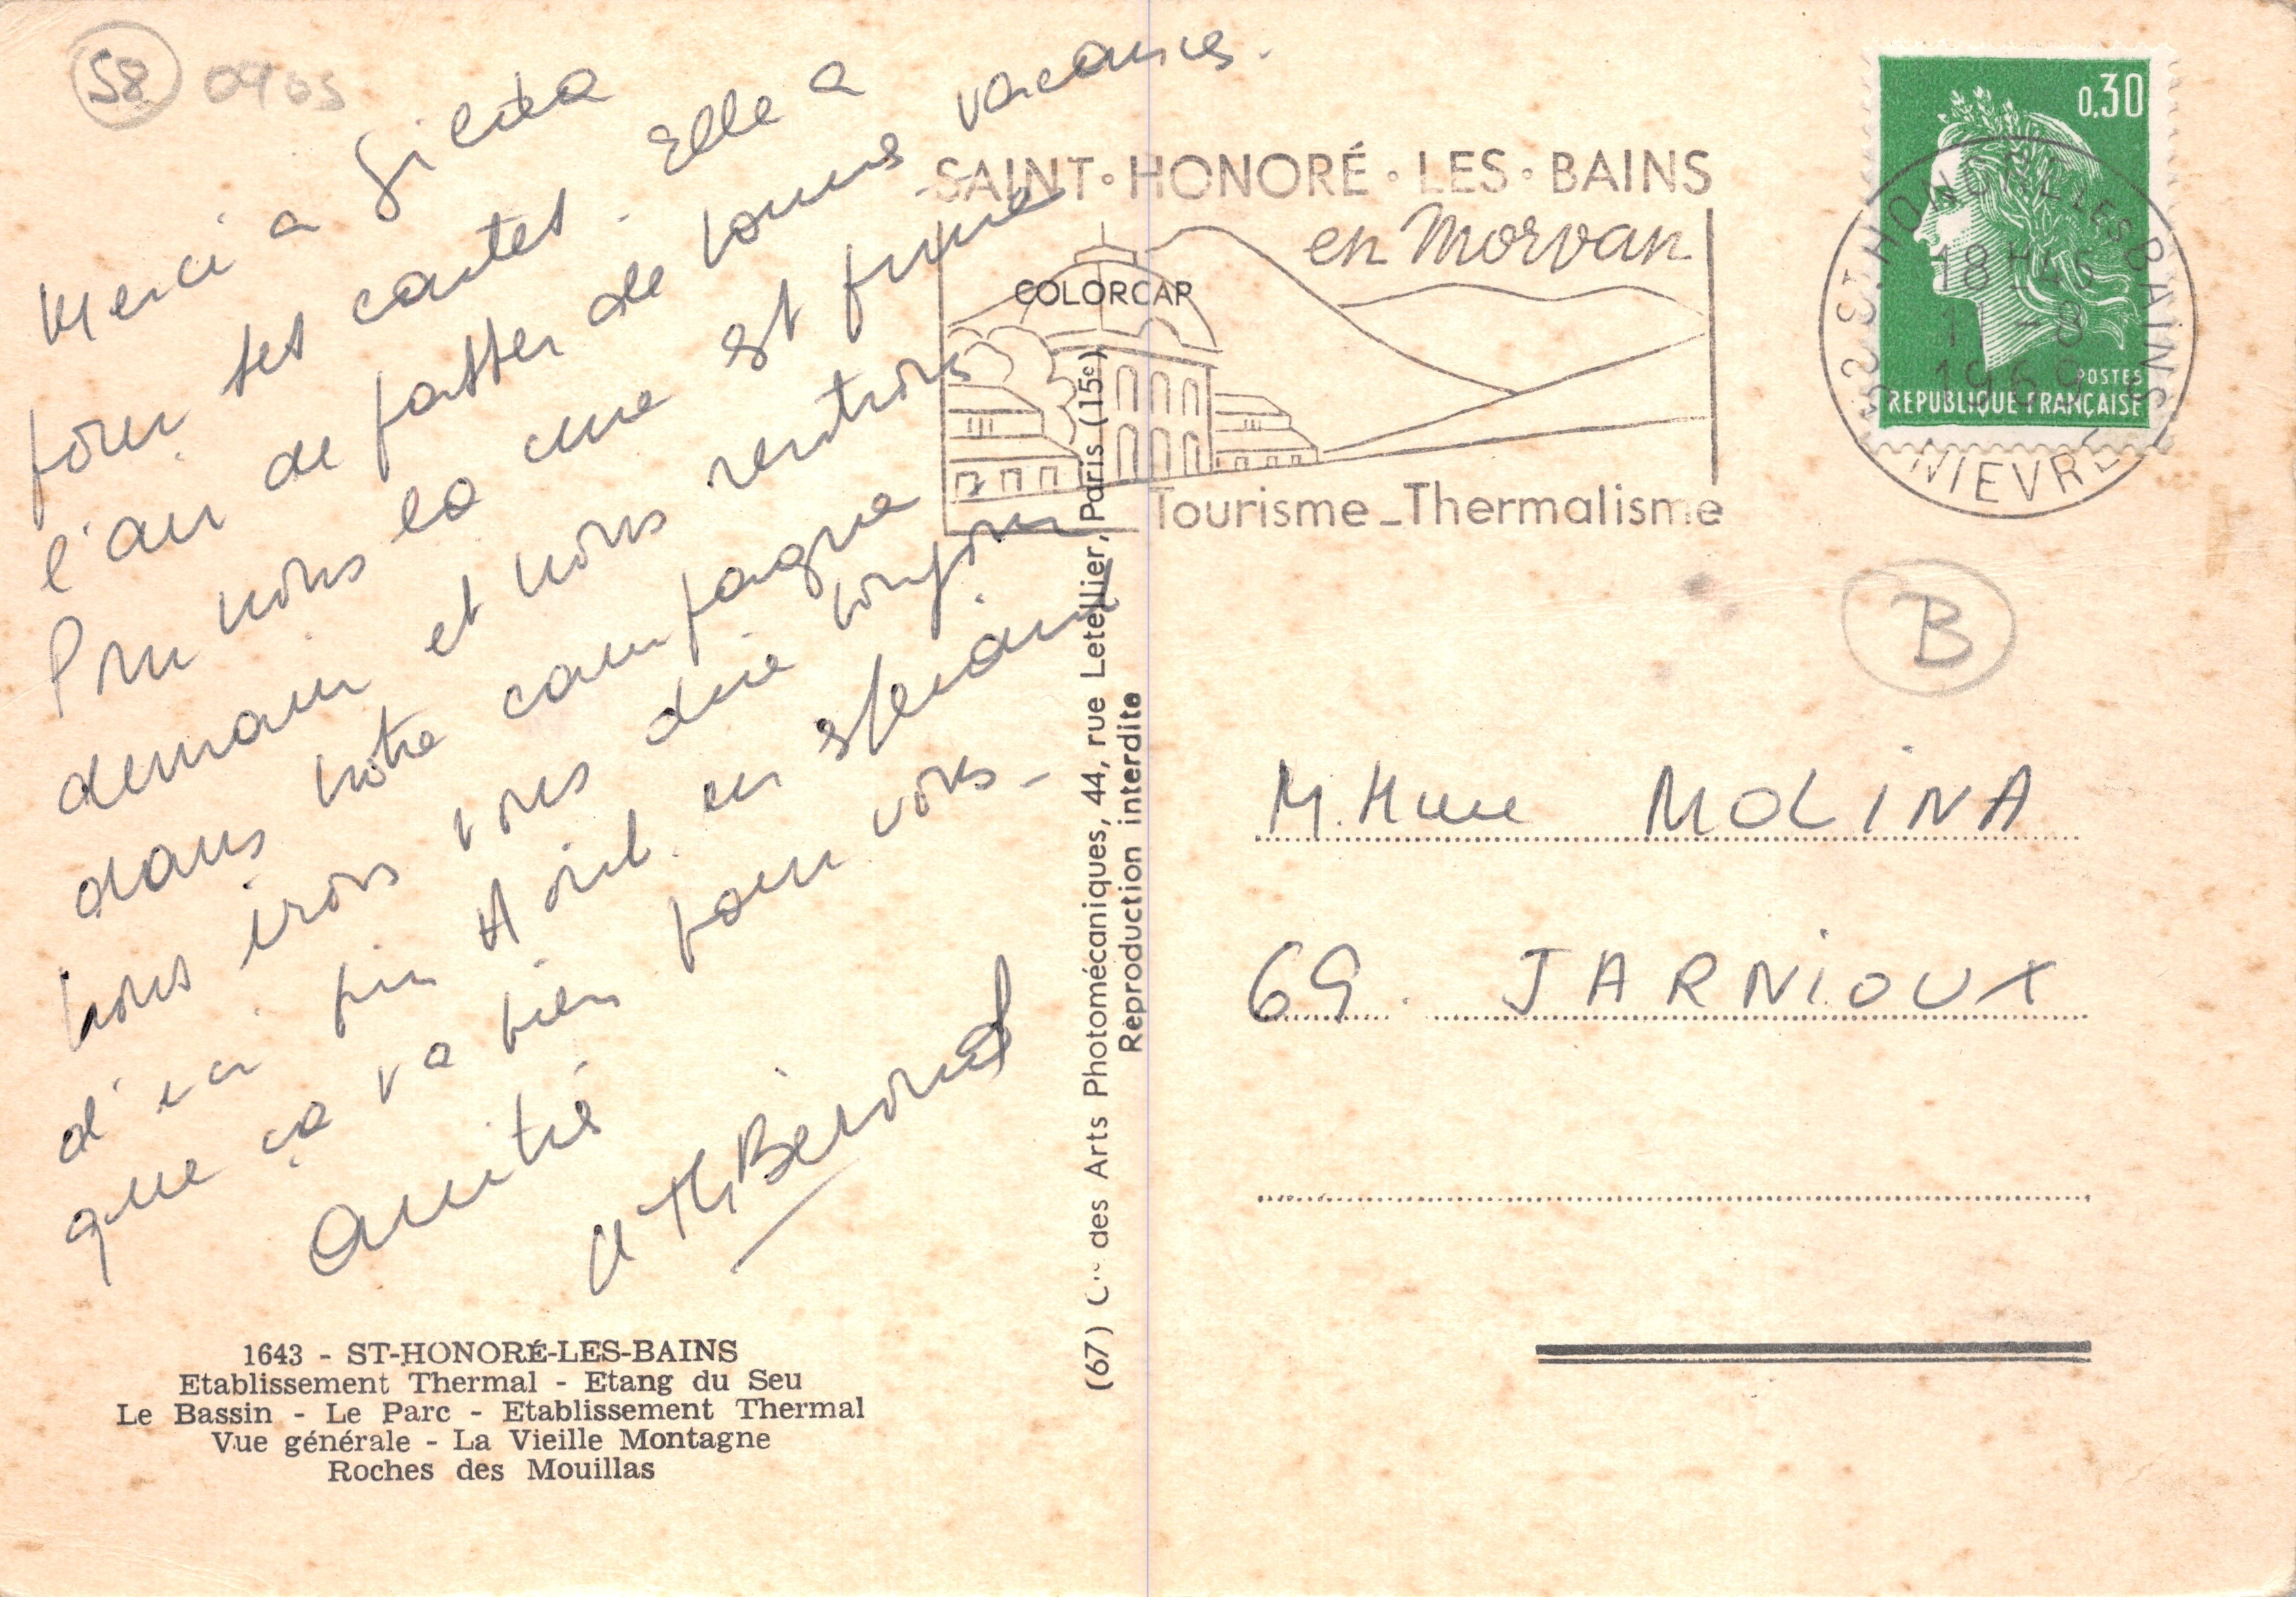 58 0903
Merci à Gilda
pour tes cartes. Elle a
l'air de passer de bonnes vacances.
Pour nous la cure est finie
demain et nous rentrons
dans notre campagne
nous irons vous dire bonjour
d'ici fin Août en espérant
que ça va bien pour vous -
Amitié
Béroud
1643 - ST-HONORÉ-LES-BAINS
Etablissement Thermal - Etang du Seu
Le Bassin - Le Parc - Etablissement Thermal
Vue générale - La Vieille Montagne
Roches des Mouillas
(67) Cie des Arts Photomécaniques, 44, rue Letellier, Paris (15e)
Reproduction interdite
SAINT • HONORÉ • LES • BAINS
en Morvan
COLORCAP
Tourisme _ Thermalisme
0,30
POSTES
REPUBLIQUE FRANÇAISE
ST HONORE LES BAINS
18H45
11 -8
1969
NIEVRE
B
M. Mme MOLINA
69. JARNIOUX